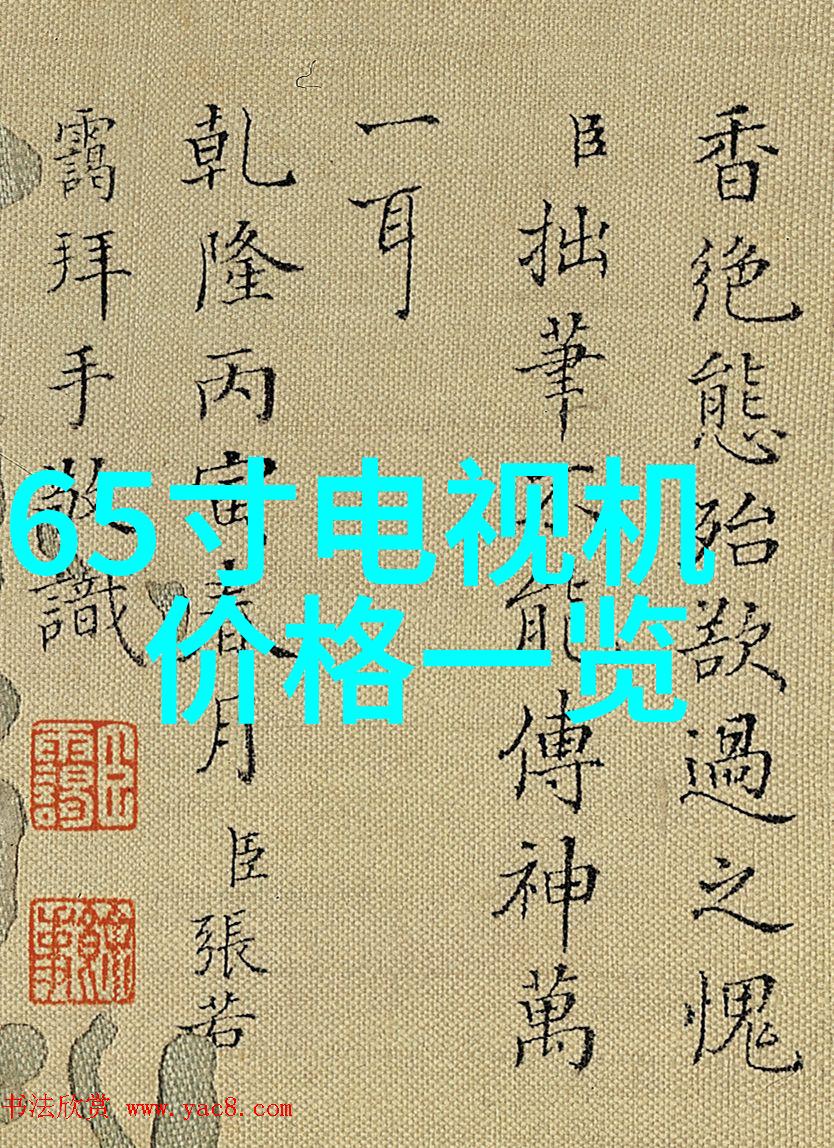 香絶態殆欲過之愧
臣拙筆不能傳神萬
一耳
乾隆丙寅春月臣張若
靄拜手敬識
65寸电视机
价格一览
书法欣赏 www.yac8.com